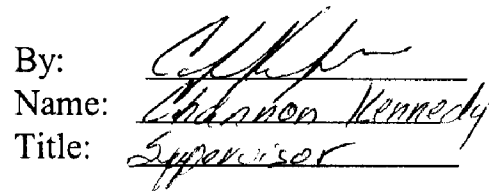 By:
Name: Channon Kennedy
Title: Supervisor